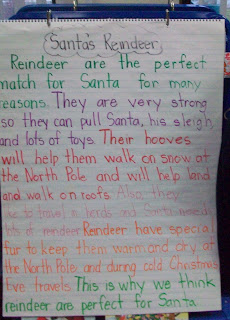 Santa's Reindeer
Reindeer are the perfect
match for Santa for many
reasons. They are very strong
so they can pull Santa, his sleigh,
and lots of toys. Their hooves
will help them walk on snow at
the North Pole and will help land
and walk on roofs. Also, they
like to travel in herds and Santa needs
lots of reindeer. Reindeer have special
fur to keep them warm and dry at
the North Pole and during cold Christmas
Eve travels. This is why we think
reindeer are perfect for Santa.